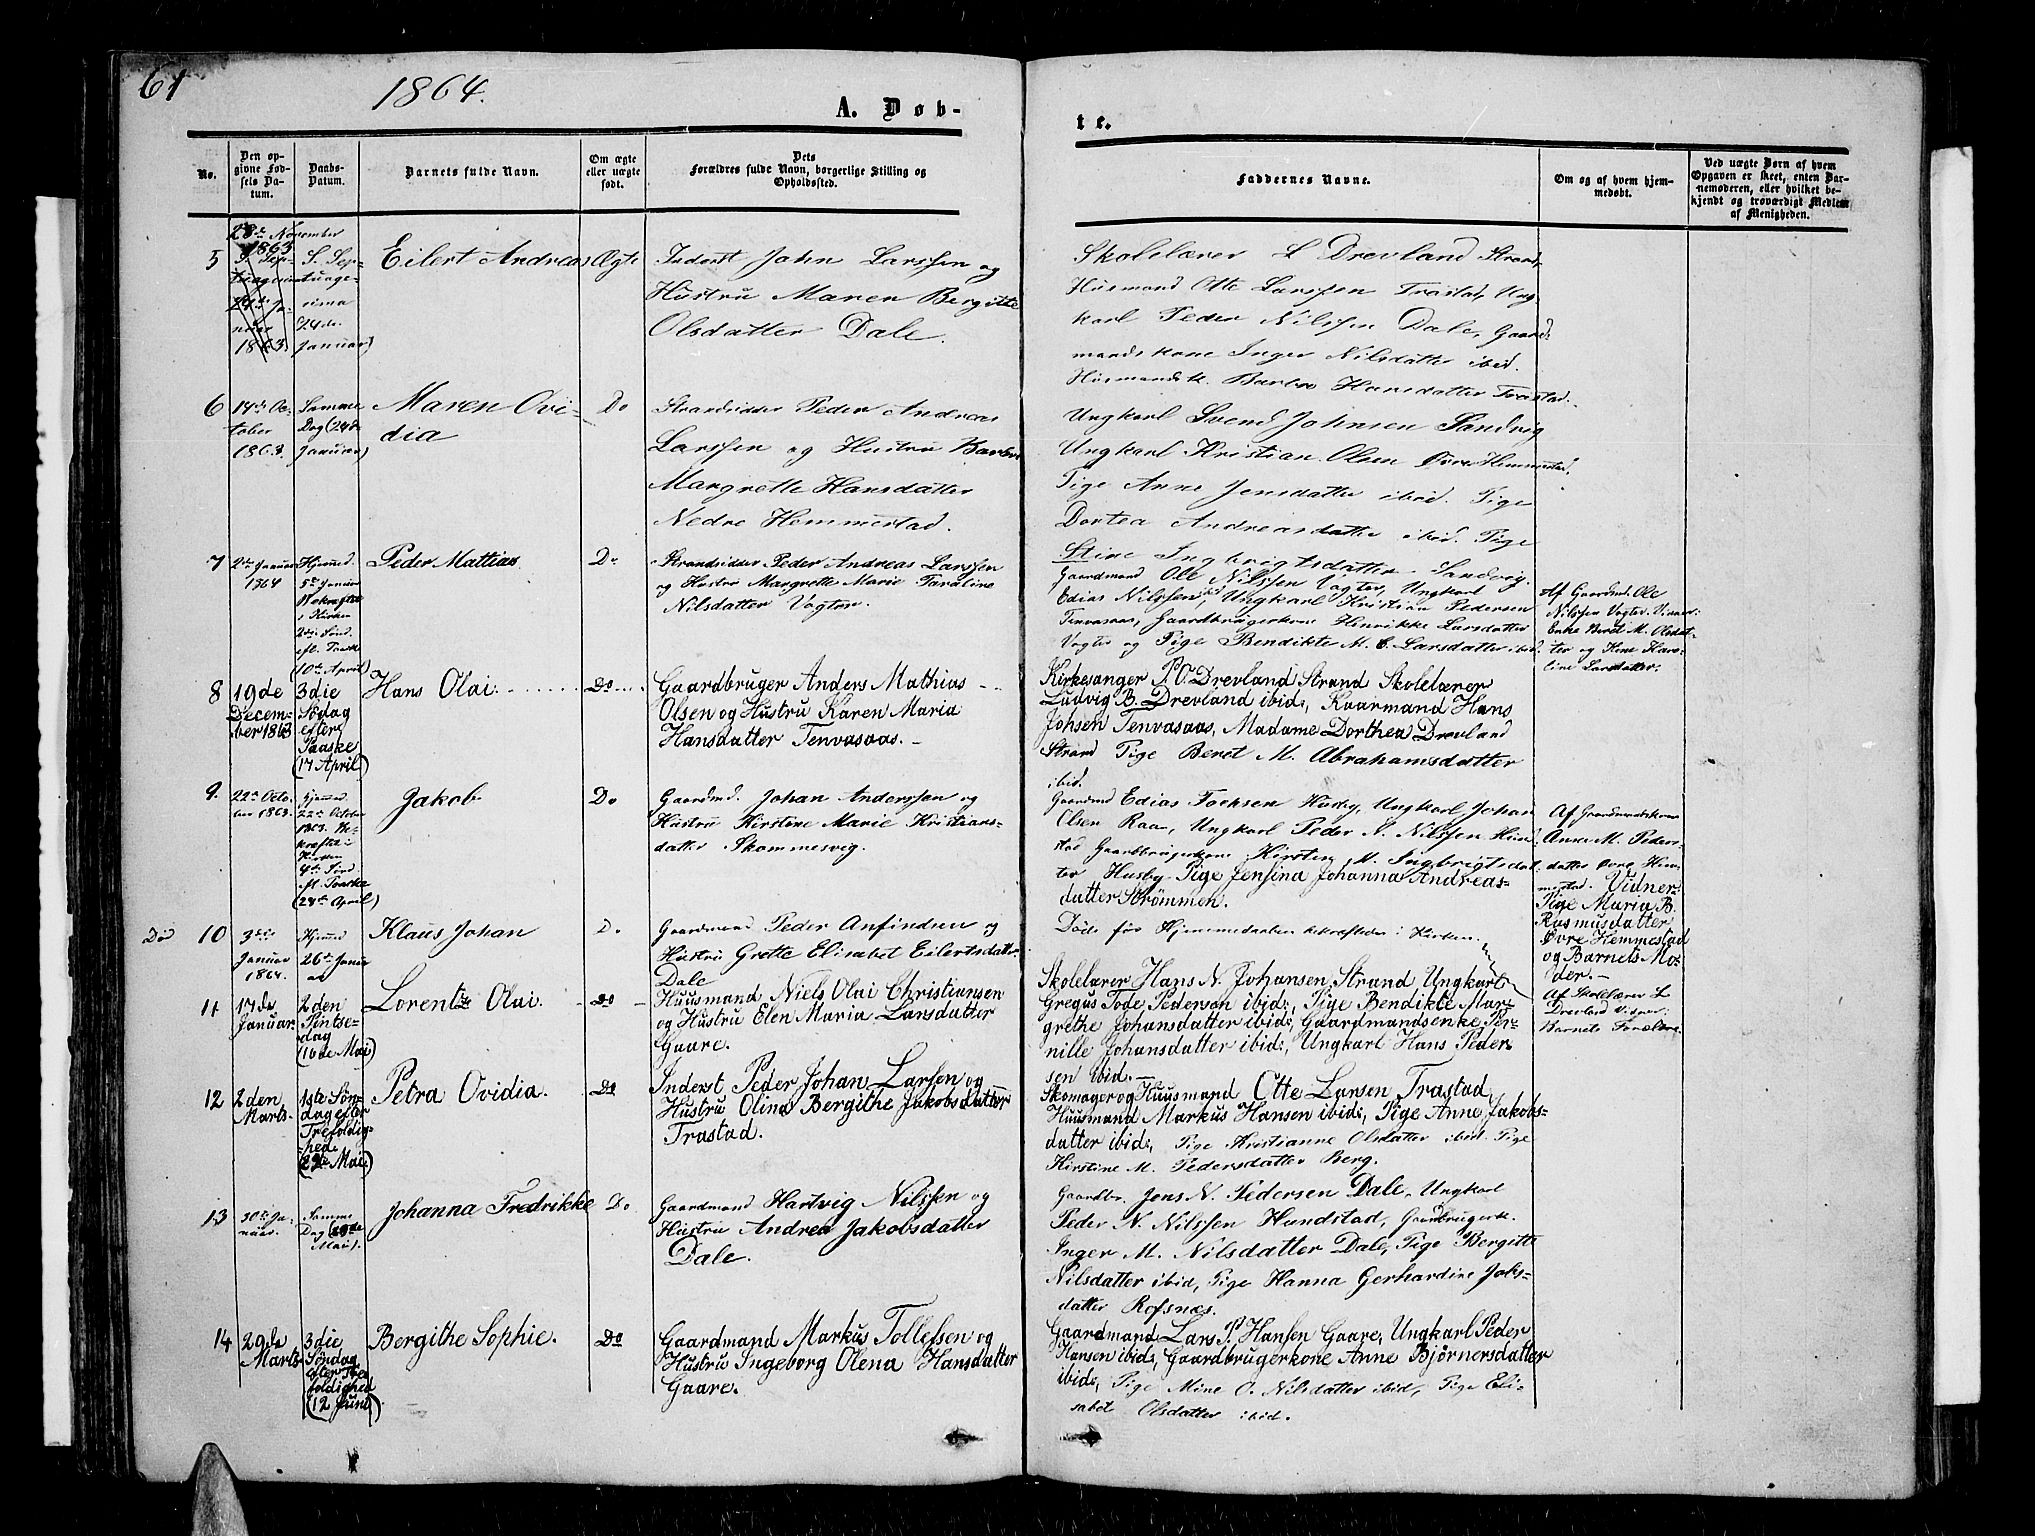 61
1864.
A. Døb-
te.
No.
Den op-
givne Fød-
sels Da-
tum.
Daabs-
Datum.
Barnets fulde Navn.
Om ægte
eller uægte
født.
Dets
Forældres fulde Navn, borgerlige Stilling og
Opholdssted.
Faddernes Navne.
Om og af hvem hjem-
medøbt.
Ved uægte Børn af hvem
Opgaven er skeet, enten Bar-
nemoderen, eller hvilket be-
kjendt og troværdigt Medlem
af Menigheden.
5
28de November
1863
S. Sep-
tuagesima
24de Ja-
nuar
1863
S. Sep-
tuage-
sima
(24de
Januar)
Eilert Andreas
Ægte
Inderst John Larssen og
Hustru Maren Bergitte
Olsdatter Dale.
Skolelærer L Drevland Strand,
Husmand Otte Larssen Trastad, Ung
karl Peder Nilssen Dale, Gaard-
mandskone Inger Nilsdatter ibid.
Husmandsk. Barbro Hansdatter Trastad.
6
14de Oc-
tober
1863.
Samme
Dag (24de
Januar)
Maren Ovi-
dia
Do
Strandsidder Peder Andreas
Larssen og Hustru Barbro
Margrette Hansdatter
Nedre Hemmestad.
Ungkarl Svend Johnsen Sandvig
Ungkarl Kristian Olsen Øvre Hemmestad.
Pige Anne Jensdatter ibid. Pige
Dortea Andreasdatter ibid. Pige
Stine Ingbrigtsdatter Sandvig.
7
2den Januar
1864
Hjemmed.
5te Januar
Bekræftet
i Kirken
2den Sønd.
eft. Paaske
(10de April)
Peder Mattias
Do
Strandsidder Peder Andreas Larssen
og Hustru Margrette Marie Karoline
Nilsdatter Vogter.
Gaardmand Ole Nilssen Vagter, Ungkarl
Edias Nilssen ibid, Ungkarl Kristian Pedersen
Tenvasaas, Gaardbrugerkone Henrikke Larsdatter
Vogter og Pige Bendikte M. C. Larsdatter ibid.
Af Gaardmd. Ole
Nilssen Vogter. Vidner:
Enke Beret M. Olsdat-
ter og Kone Karo-
line Larsdatter.
8
19de
Decem-
ber 1863
3die
Södag
efter
Paaske
(17 April)
Hans Olai.
Do
Gaardbruger Anders Mathias
Olsen og Hustru Karen Maria
Hansdatter Tenvasaas.
Kirkesanger P. O. Drevland Strand Skolelærer
Ludvig B. Drevland ibid:, Kaarmand Hans
Johsen Tenvasaas, Madame Dorthea Drevland
Strand Pige Beret M. Abrahamsdatter
ibid.
9.
22de Octo-
ber 1863.
Hjemmed
22de October
1863. Be-
kræftet i
Kirken
4de Sønd
eft. Paaske
(24de April)
Jakob
Do
Gaardmd. Johan Anderssen og
Hustru Kirstine Marie Kristians-
datter Skommesvig.
Gaardmd Edias Tochsen Husby, Ungkarl Johan
Olsen Raa, Ungkarl Peder N. Nilssen Hund
stad Gaardbrugerkone Kirsten M. Ingbrigtsdat
ter Husby Pige Jensina Johanna Andreas-
datter Strømmen.
Af Gaardmandskone
Anne M. Peders-
datter Øvre Hem-
mestad. Vidner
Pige Maria B.
Rasmusdatter
Øvre Hemmestad
og Barnets Mo-
der.
Død
10
3die
Januar
1864.
Hjemmed
26de Janu
ar
Klaus Johan
Do
Gaardmand Peder Anfindsen og
Hustru Grette Elisabet Eilertsdatter
Dale
Døde før Hjemmedaaben bekræftedes i Kirken.
Af Skolelærer L
Drevland Vidner:
Barnets Forældre.
11
17de
Januar
2den
Pintse-
dag
(16de Mai)
Lorents Olai.
Do
Huusmand Niels Olai Christiansen
og Hustru Elen Maria Larsdatter
Gaare.
Skolelærer Hans N. Johansen Strand, Ungkarl
Gregus Tode Pedersen ibid:, Pige Bendikte Mar
grethe Johansdatter ibid:, Gaardmandsenke Per-
nille Johansdatter ibid:, Ungkarl Hans Peder
sen ibid.
12
2den
Marts
1ste Søn-
dag efter
Trefoldig-
hed.
(29de Mai)
Petra Ovidia.
Do
Inderst Peder Johan Larsen og
Hustru Olina Bergithe Jakobsdatter
Trastad.
Skomager og Huusmand Otte Larsen Trastad,
Huusmand Markus Hansen ibid:, Pige Anne Jakobs-
datter ibid:, Pige Kristianne Olsdatter ibid. Pige
Kirstine M. Pedersdatter Berg.
13
30te Ja-
nuar.
Samme
Dag (29de
Mai).
Johanna Fredrikke
Do
Gaardmand Hartvig Nilssen og
Hustru Andrea Jakobsdatter
Dale.
Gaardbr. Jens N. Pedersen Dale, Ungkarl
Peder N. Nilssen Hundstad, Gaardbrugerk.
Inger M. Nilsdatter Dale, Pige Bergitte
Nilsdatter ibid, Pige Hanna Gerhardine Jobs-
datter Rofsnæs.
14
29de
Marts
3die
Søndag
efter Tre
foldighed
(12 Juni)
Bergithe Sophie.
Do
Gaardmand Markus Tollefsen og
Hustru Ingeborg Olena Hansdatter
Gaare.
Gaardmand Lars P. Hansen Gaare, Ungkarl Peder
Hansen ibid:, Gaardbrugerkone Anne Bjørnersdatter
ibid:, Pige Mine O. Nilsdatter ibid, Pige Eli-
sabet Olsdatter ibid.